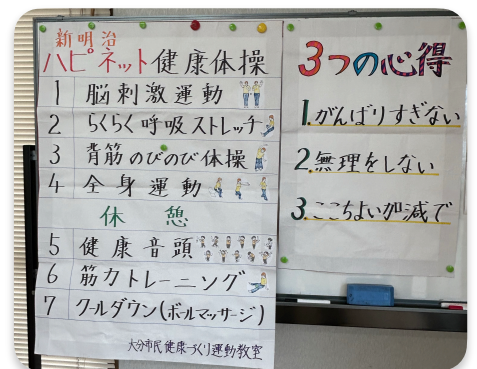 新明治
ハピネット健康体操
1 脳刺激運動
2 らくらく呼吸ストレッチ
3 背筋のびのび体操
4 全身運動
休憩
5 健康音頭
6 筋力トレーニング
7 クールダウン(ボールマッサージ)
大分市民健康づくり運動教室
3つの心得
1.がんばりすぎない
2.無理をしない
3.ここちよい加減で